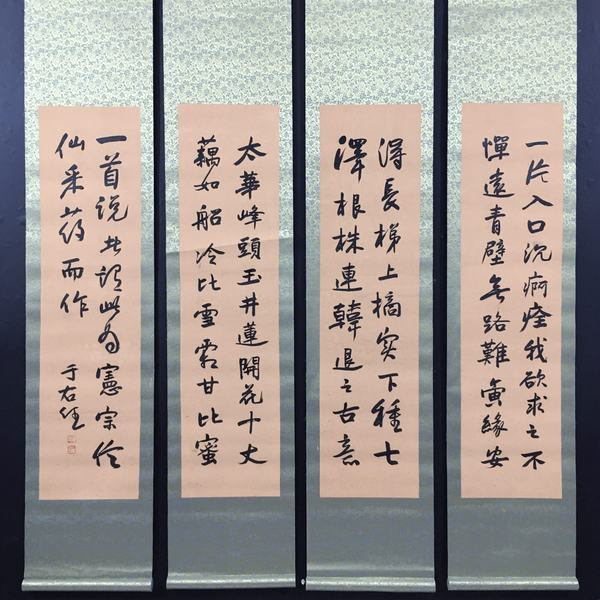 太華峰頭玉井蓮開花十丈
藕如船冷比雪霜甘比蜜
一片入口沉痾痊我欲求之不
憚遠青壁無路難夤緣安
得長梯上摘實下種七
澤根株連韓退之古意
一首說者謂此為憲宗信
仙采药而作
于右任